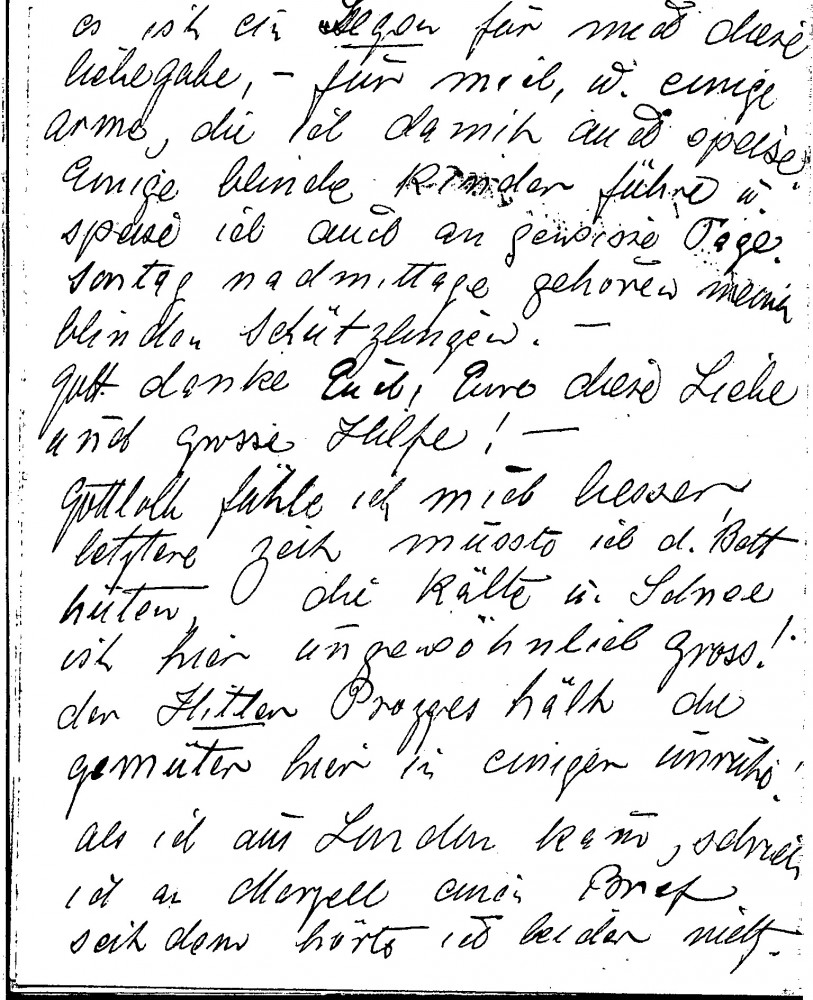 es ist ein Segen für mich diese
liebe gabe, – für mich, u. einige
arme, die ich damit auch speise.
Einige blinde Kinder führe u.
speise ich auch an gewisse Tage.
Sontag nachmittage gehören meinen
blinden Schützlingen. –
Gott danke Euch, Eure diese Liebe
und grosse Hilfe! –
Gottlob fühle ich mich besser,
letztere zeit müsste ich d. Bett
hüten, die Kälte u. Schnee
ist hier ungewöhnlich gross!
der Hitler Prozzes hält die
gemüter hier in einiger unruhe!
als ich aus London kam, schrieb
ich an einen Brief
seit dem hörte ich leider nichts.